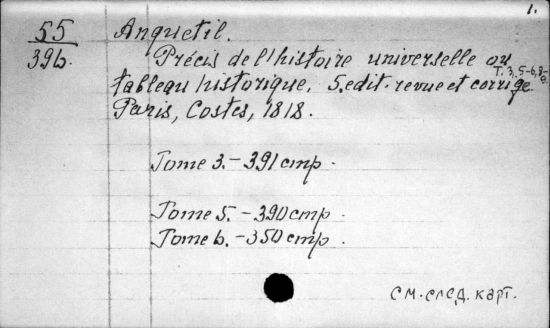 1.
55 Anquetil.
396. Précis de l'histoire universelle ou
Т. 3, 5-6, 8-
tableau historique. 5.edit. revue et corrigé
Paris, Costes, 1818.
Tome 3. - 391 стр.
Tome 5. - 390 стр.
Tome 6. - 350 стр.
см. след. карт.